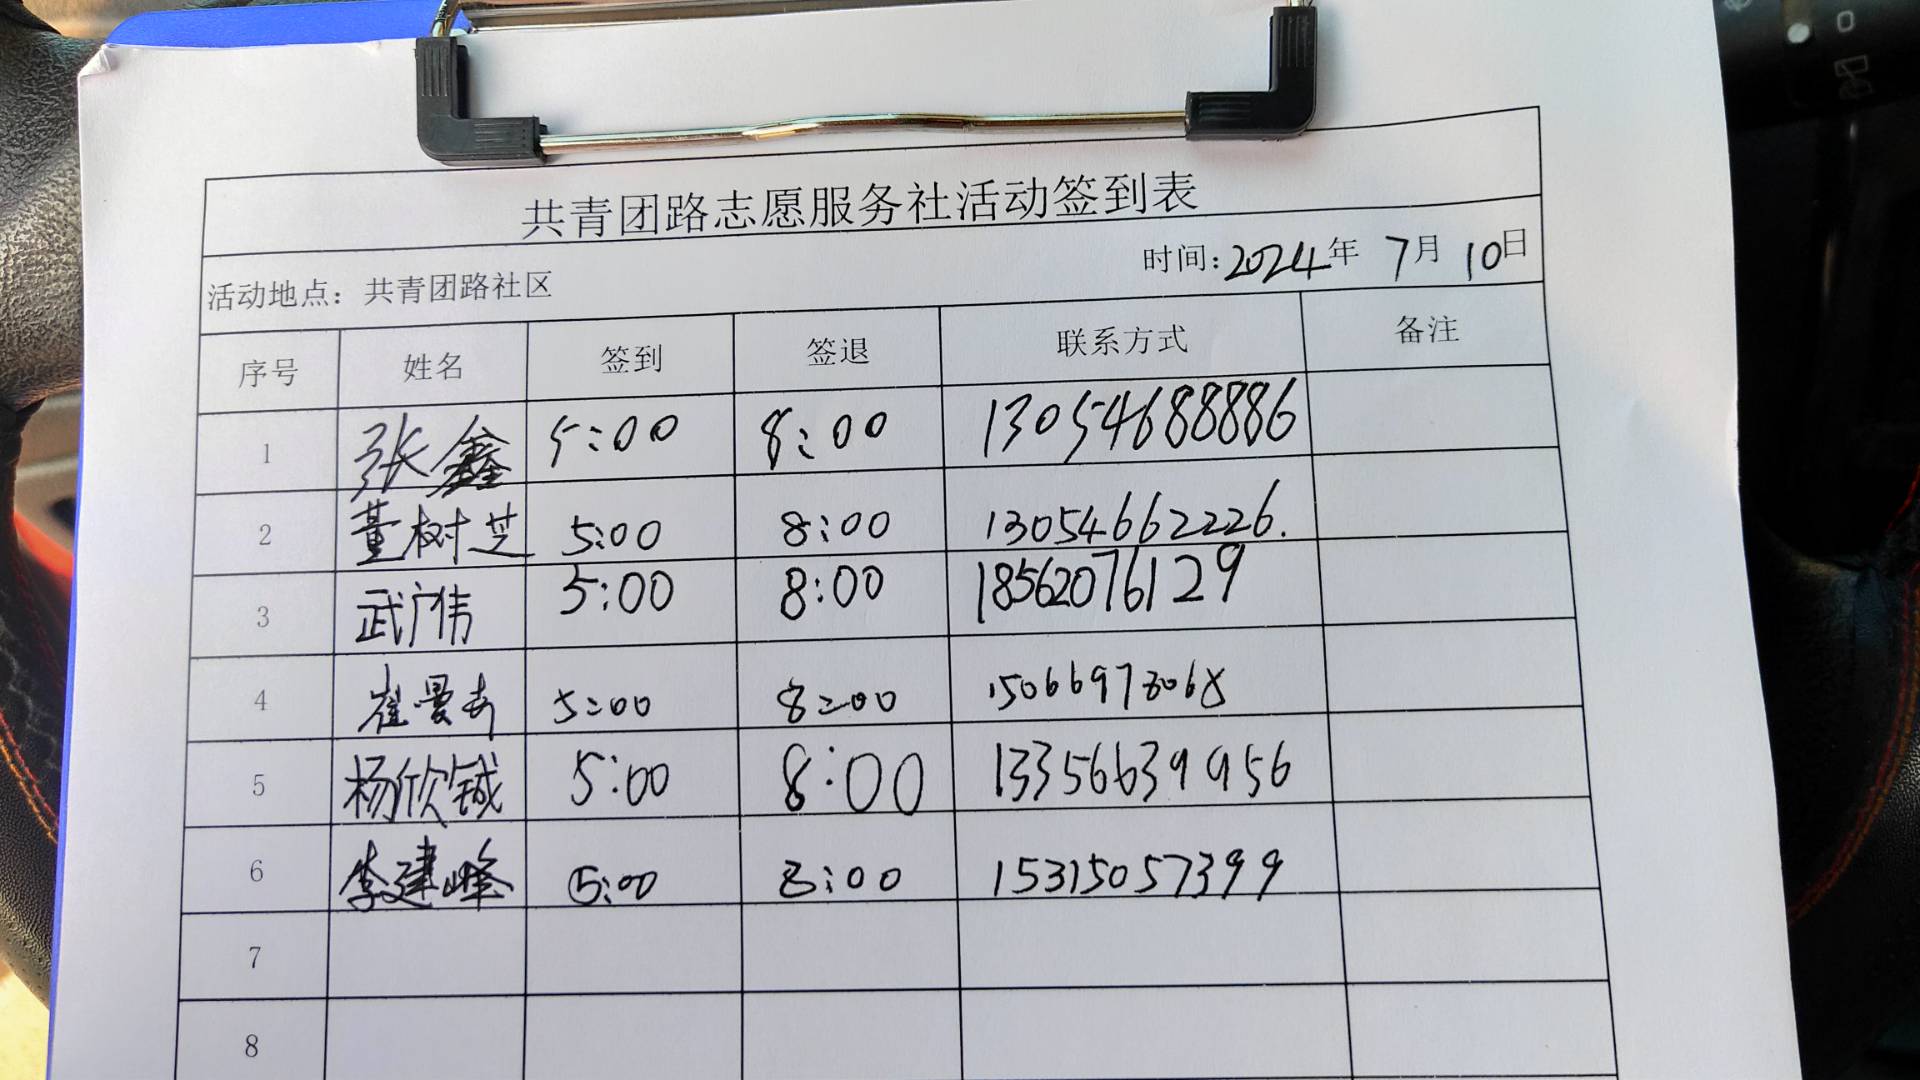 共青团路志愿服务社活动签到表
活动地点：共青团路社区 时间：2024年 7月 10日
序号 姓名 签到 签退 联系方式 备注
1 张鑫 5:00 8:00 13054688886
2 董树芝 5:00 8:00 13054662226.
3 武广伟 5:00 8:00 18562076129
4 崔曼 5:00 8:00
5 杨欣铖 5:00 8:00 13356639956
6 李建峰 5:00 8:00 15315057399
7
8